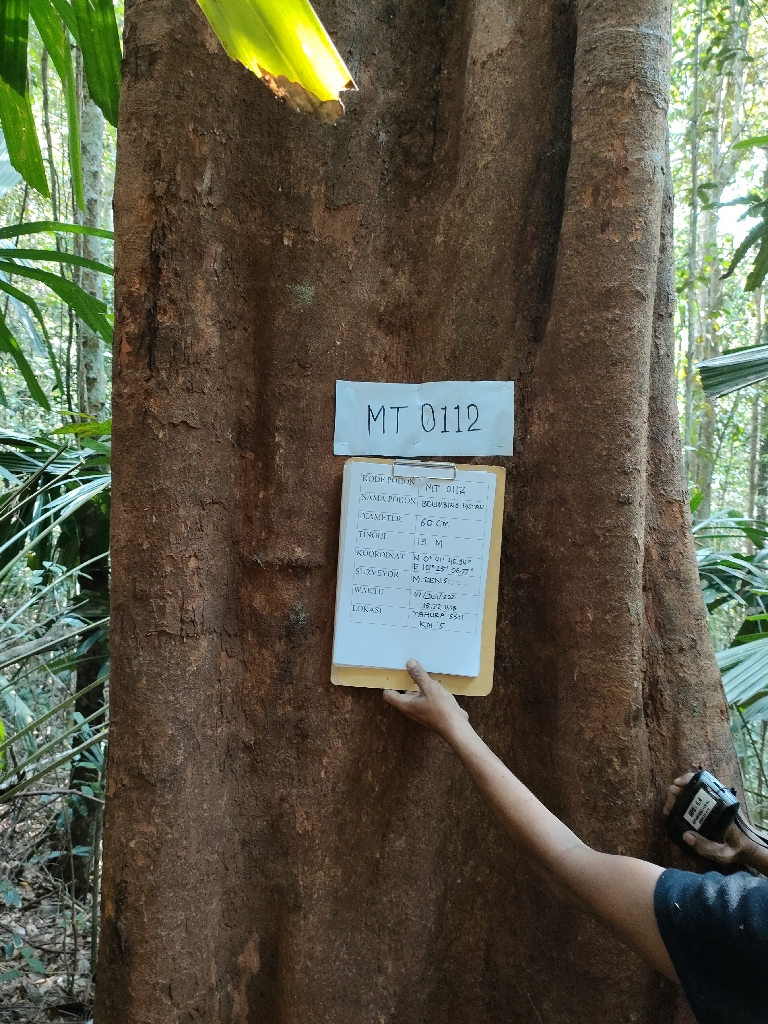 MT 0112
KODE POHON MT 0112
NAMA POHON BELIMBING HUTAN
DIAMETER 60 CM
TINGGI 19 M
KOORDINAT N 0° 41'
E 101°
SURVEYOR M. DENIS
WAKTU
LOKASI TAHURA SSH
KM 5